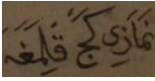 نمازي كج قيلمغه